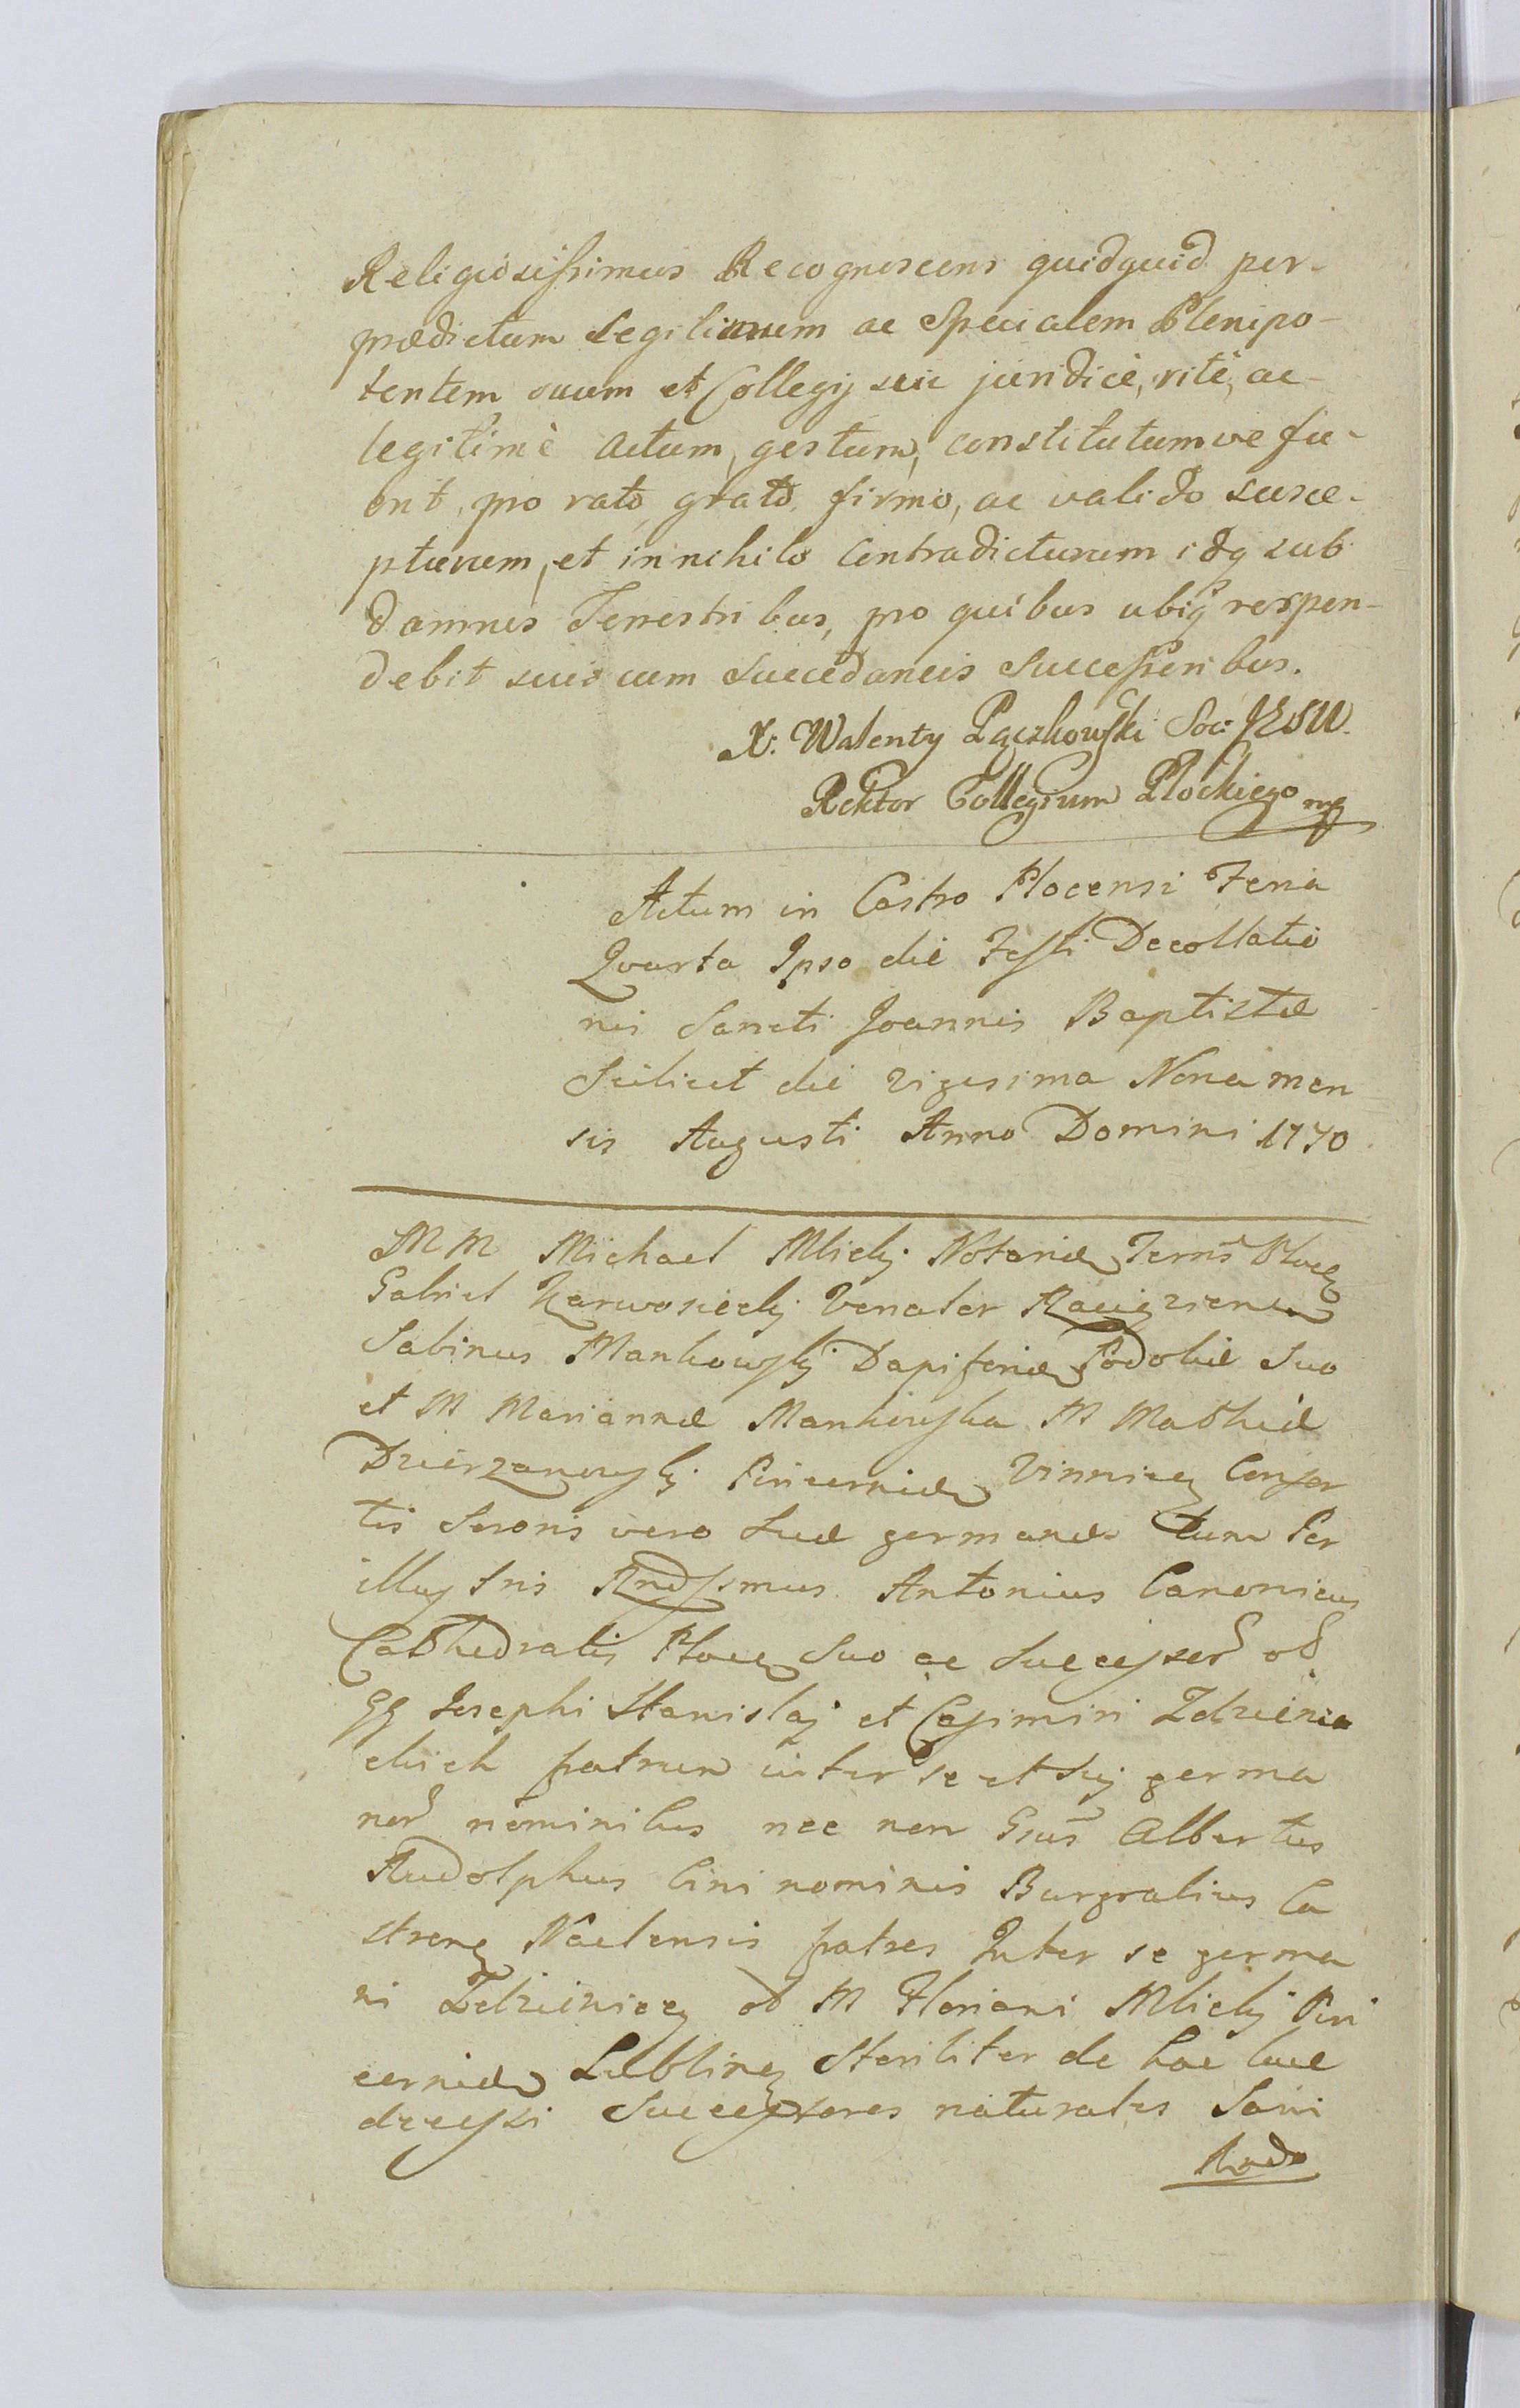 Religiosissimus Recognoscens quidquid per-
prædictum Legitimum ac Specialem Plenipo-
tentem suum et Collegij sui juridicè, ritè, ac-
legitimè actum, gestum, constitutumve fu-
erit, pro rato, grato, firmo, ac valido susce-
pturum, et in nihilo Contradicturum idq sub
damnis Terrestribus, pro quibus ubiq respon-
debit suis cum Succedaneis Successoribus.
X. Walenty Pączkowski Soc: JESU.
Rektor Collegium Płockiego mp
Actum in Castro Plocensi Feria
Quarta Ipso die Festi Decollatio
nis Sancti Joannis Baptistæ
Scilicet die vigesima Nona men
sis Augusti Anno Domini 1770
MM Michael Mlicki Notarid Terris Ploc
Gabriel Karwosiecki Venator Raciąziens
Sabinus Mankowski Dapiferid Podoliæ Suo
et M Mariannæ Mankowska M Mathiæ
Dzierzanowski Pincernid Vinnic Consor
tis Sororis vero Suæ germanæ tum Per
illustris Rndssmus Antonius Canonicus
Cathedralis Ploc Suo ac Successor ob
GG Josephi Stanislaj et Casimiri Zdzienic
kich fratrum inter se et Sui germa
nor nominibus nec non Gsus Albertus
Rudolphus bini nominis Burgrabius Ca
strens Naclensis fratres Inter se germa
ni Zdzieniccy ob M Floriani Mlicki Pin
cernid Lublin Steriliter de hac luce
decessi Successores naturales Sani